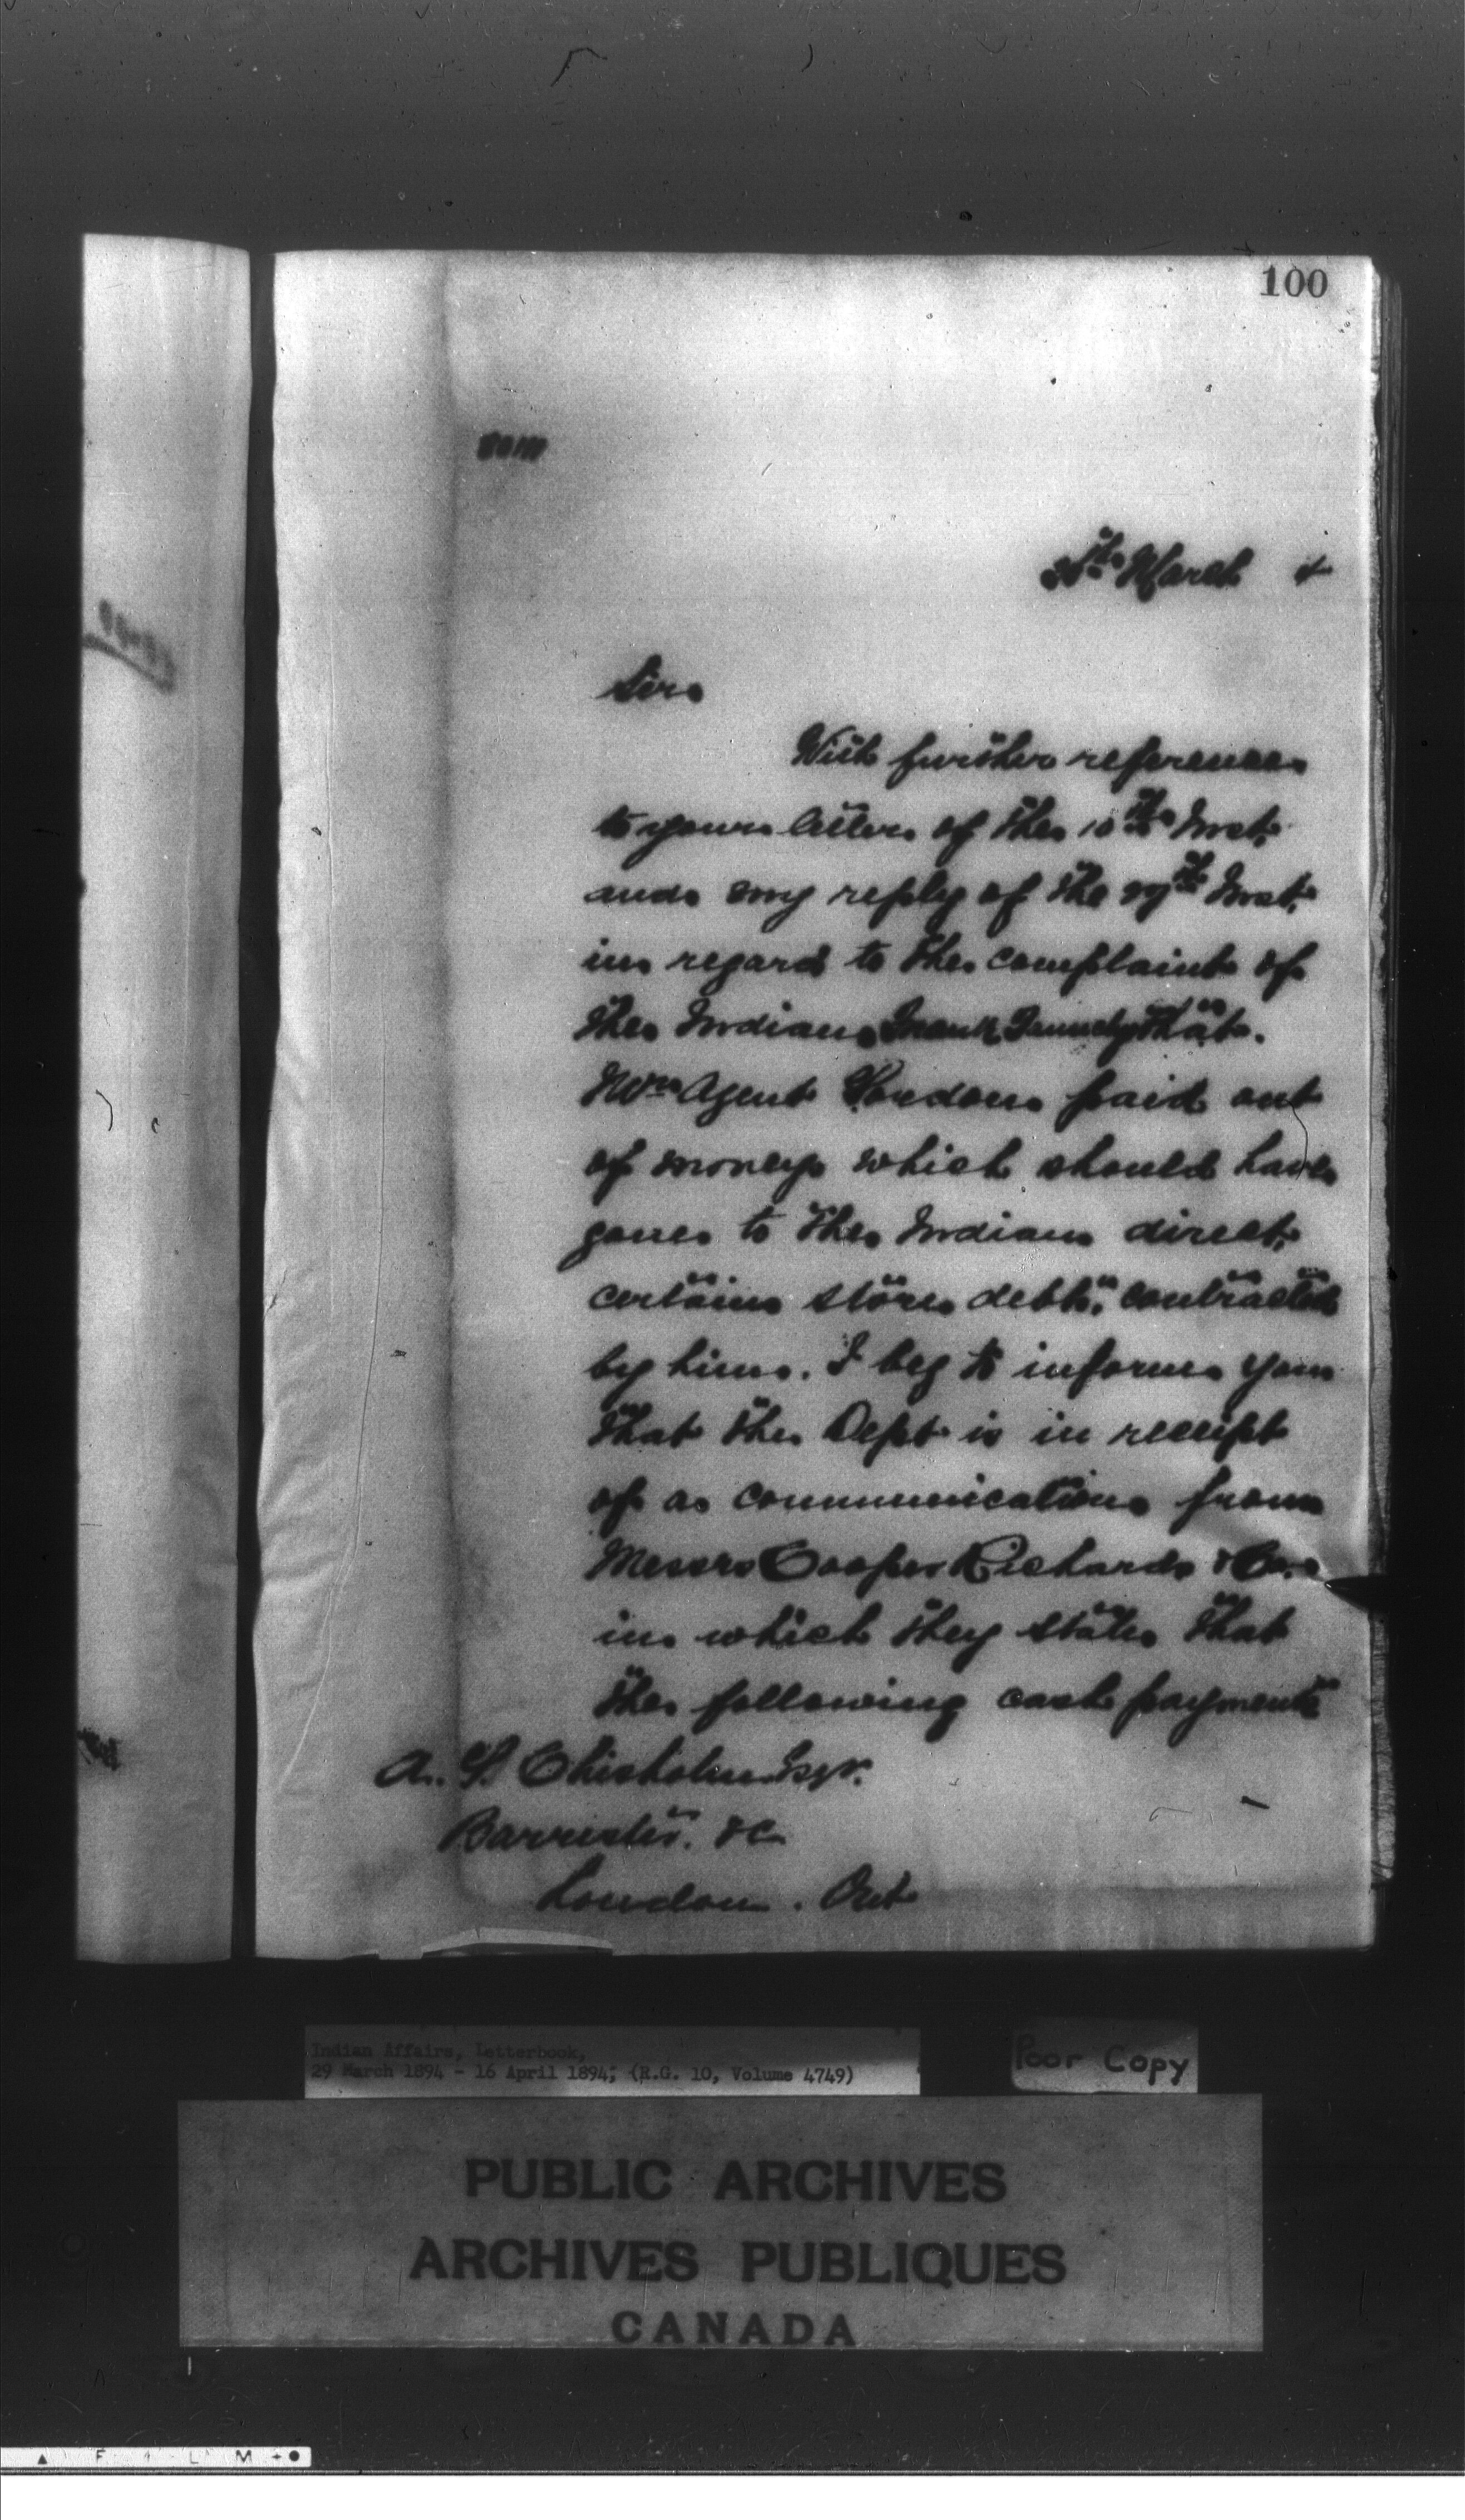 100
March 4
Sir
With further reference
to your letter of the 10th Inst.
and my reply of the 29th Inst.
in regard to the complaint of
the Indian Frank that
Agent Gordon paid out
of money which should have
gone to the Indian direct,
certain store debts contracted
by him. I beg to inform you
that the Dept is in receipt
of a communication from
Messrs Cooper Richards & Co.
in which they state that
the following cash payments
A. G. Chisholm Esqr.
Barrister. &c
London. Ont
Indian Affairs, Letterbook,
29 March 1894 - 16 April 1894; (R.G. 10, Volume 4749)
Poor Copy
PUBLIC ARCHIVES
ARCHIVES PUBLIQUES
CANADA
F I L M